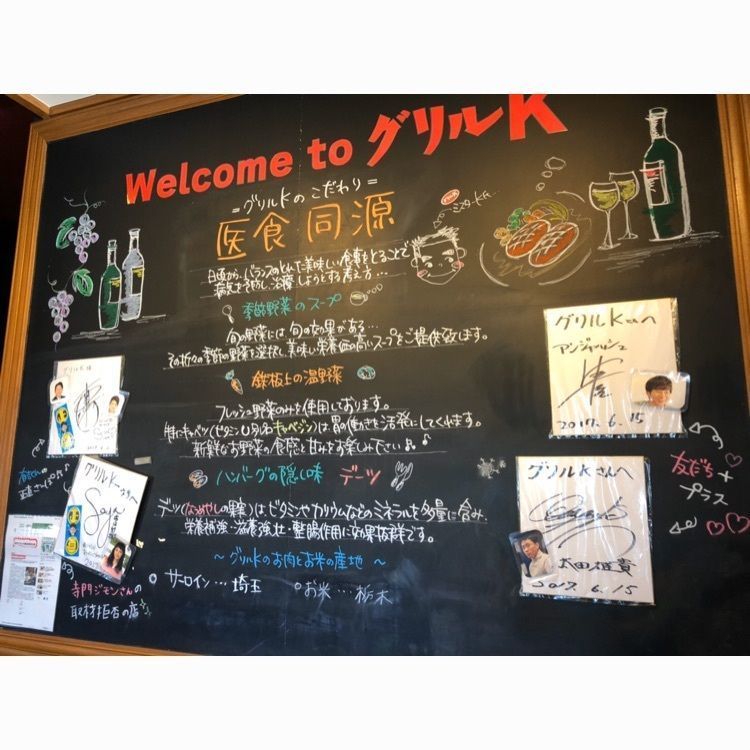 Welcome to グリルK
=グリルKのこだわり=
医食同源
日頃から、バランスのとれた美味しい食事をとることで
病気を予防し、治療しようとする考え方…
ミスターK
季節野菜のスープ
旬の野菜には 旬の効果がある…
その折々の季節の野菜を選択し、美味しい栄養価の高いスープをご提供致します。
鉄板上の温野菜
フレッシュ野菜のみを使用しております。
特にキャベツ(ビタミンU別名キャベジン)は 胃の働きを活発にしてくれます。
新鮮なお野菜の食感と甘みをお楽しみ下さい♪
ハンバーグの隠し味 デーツ
デーツ(なつめやしの果実)はビタミンやカリウムなどのミネラルを多量に含み、
栄養補強・滋養強壮・整腸作用に効果抜群です。
～グリルKのお肉とお米の産地～
サーロイン…埼玉
お米…栃木
グリルK様
グリルKさんへ
寺門ジモンさんの
取材拒否の店
グリルKさんへ
アンジャッシュ
2017.6.15
グリルKさんへ
太田雄貴
2017.6.15
友だち+
プラス